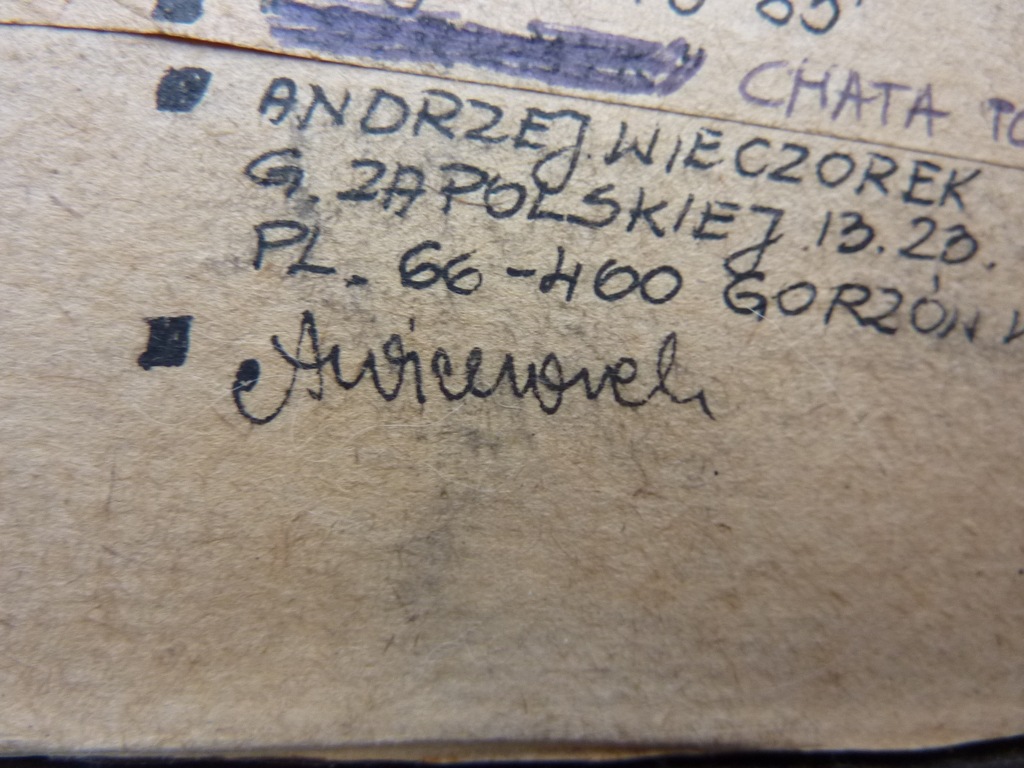 CHATA
ANDRZEJ. WIECZOREK
G. ZAPOLSKIEJ. 13. 23.
PL. 66-400 GORZÓW
AWieczorek